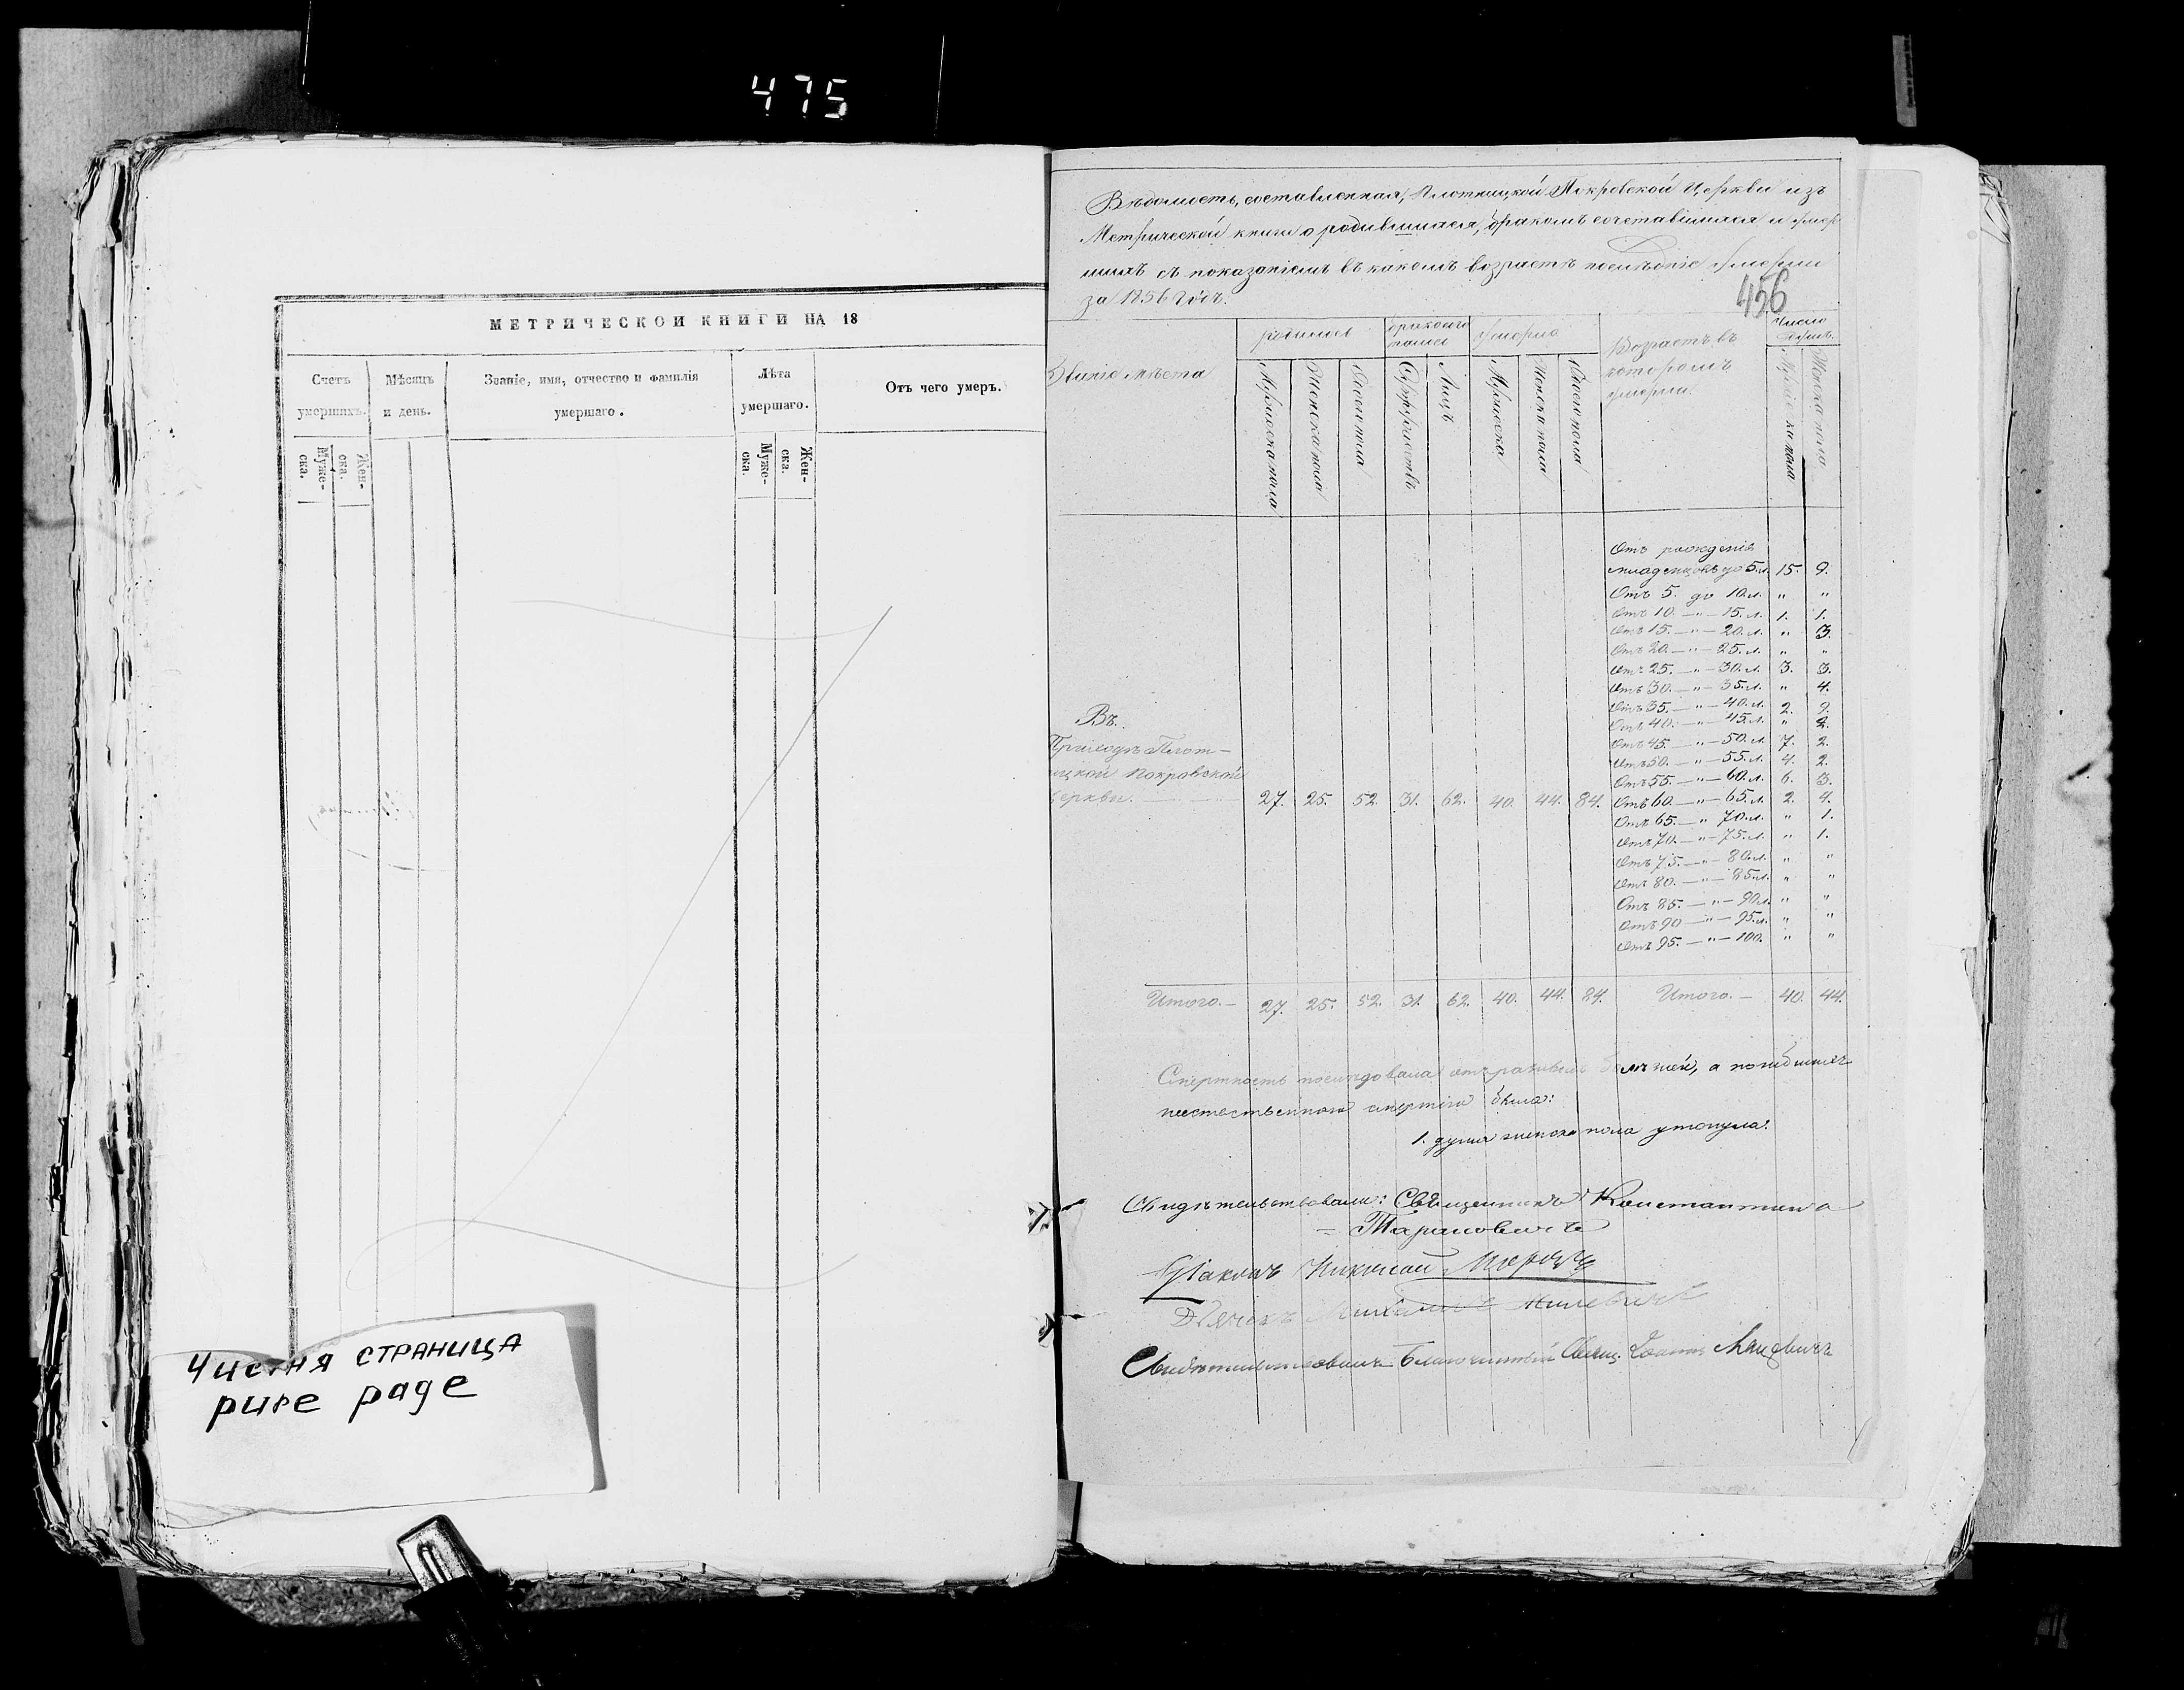 475
МЕТРИЧЕСКОЙ КНИГИ НА 18
Счетъ умершихъ. Мѣсяцъ и день. Званіе, имя, отчество и фамилія умершаго. Лѣта умершаго. Отъ чего умеръ.
Муже-ска. Жен-ска. Муже-ска. Жен-ска.
Чистая страница
pure page
Вѣдомость, составленная, Плотницкой Покровской Церкви изъ
Метрической книги о родившихся, бракомъ сочетавшихся и умер
шихъ съ показаніемъ въ какомъ возрастѣ послѣдніе умерли
за 1856 годъ.
456
родилось Умерло Возрастъ въ которомъ умерли. Число душъ.
мѣста Мужеска пола Женска пола Обоего пола Супружествъ Лицъ Мужеска Женска пола Обоего пола Мужеска пола Женска пола
Отъ рожденія
младенцовъ до 5.л. 15. 9.
Отъ 5. до 10.л. " "
Отъ 10. — " — 15.л. 1. 1.
Отъ 15. — " — 20.л. " 3.
Отъ 20. — " — 25.л. " "
Отъ 25. — " — 30.л. 3. 3.
Отъ 30. — " — 35.л. " 4.
Отъ 35. — " — 40.л. 2. 9.
Отъ 40. — " — 45.л. " 2.
Отъ 45. — " — 50.л. 7. 2.
Отъ 50. — " — 55.л. 4. 2.
Отъ 55. — " — 60.л. 6. 3.
Въ
Приходѣ Плот-
ицкой Покровской
церкви. — 27. 25. 52. 31. 62. 40. 44. 84. Отъ 60. — " — 65.л. 2. 4.
Отъ 65. — " 70.л. " 1.
Отъ 70. — " — 75.л. " 1.
Отъ 75. — " — 80.л. " "
Отъ 80. — " — 85.л. " "
Отъ 85. — " — 90.л. " "
Отъ 90 — " — 95.л. " "
Отъ 95. — " — 100. " "
Итого. — 27. 25. 52. 31. 62. 40. 44. 84. Итого. — 40. 44.
Смертность послѣдовала отъ разныхъ болѣзней, а погибшихъ
неестественною смертію была:
1. душа женска пола утонула.
Свидѣтельствовали: Священникъ Константинъ
= Тарановичъ
Діаконъ Николай
Дьячокъ
Свидѣтельствовалъ Благочинный Свящ. Іоаннъ